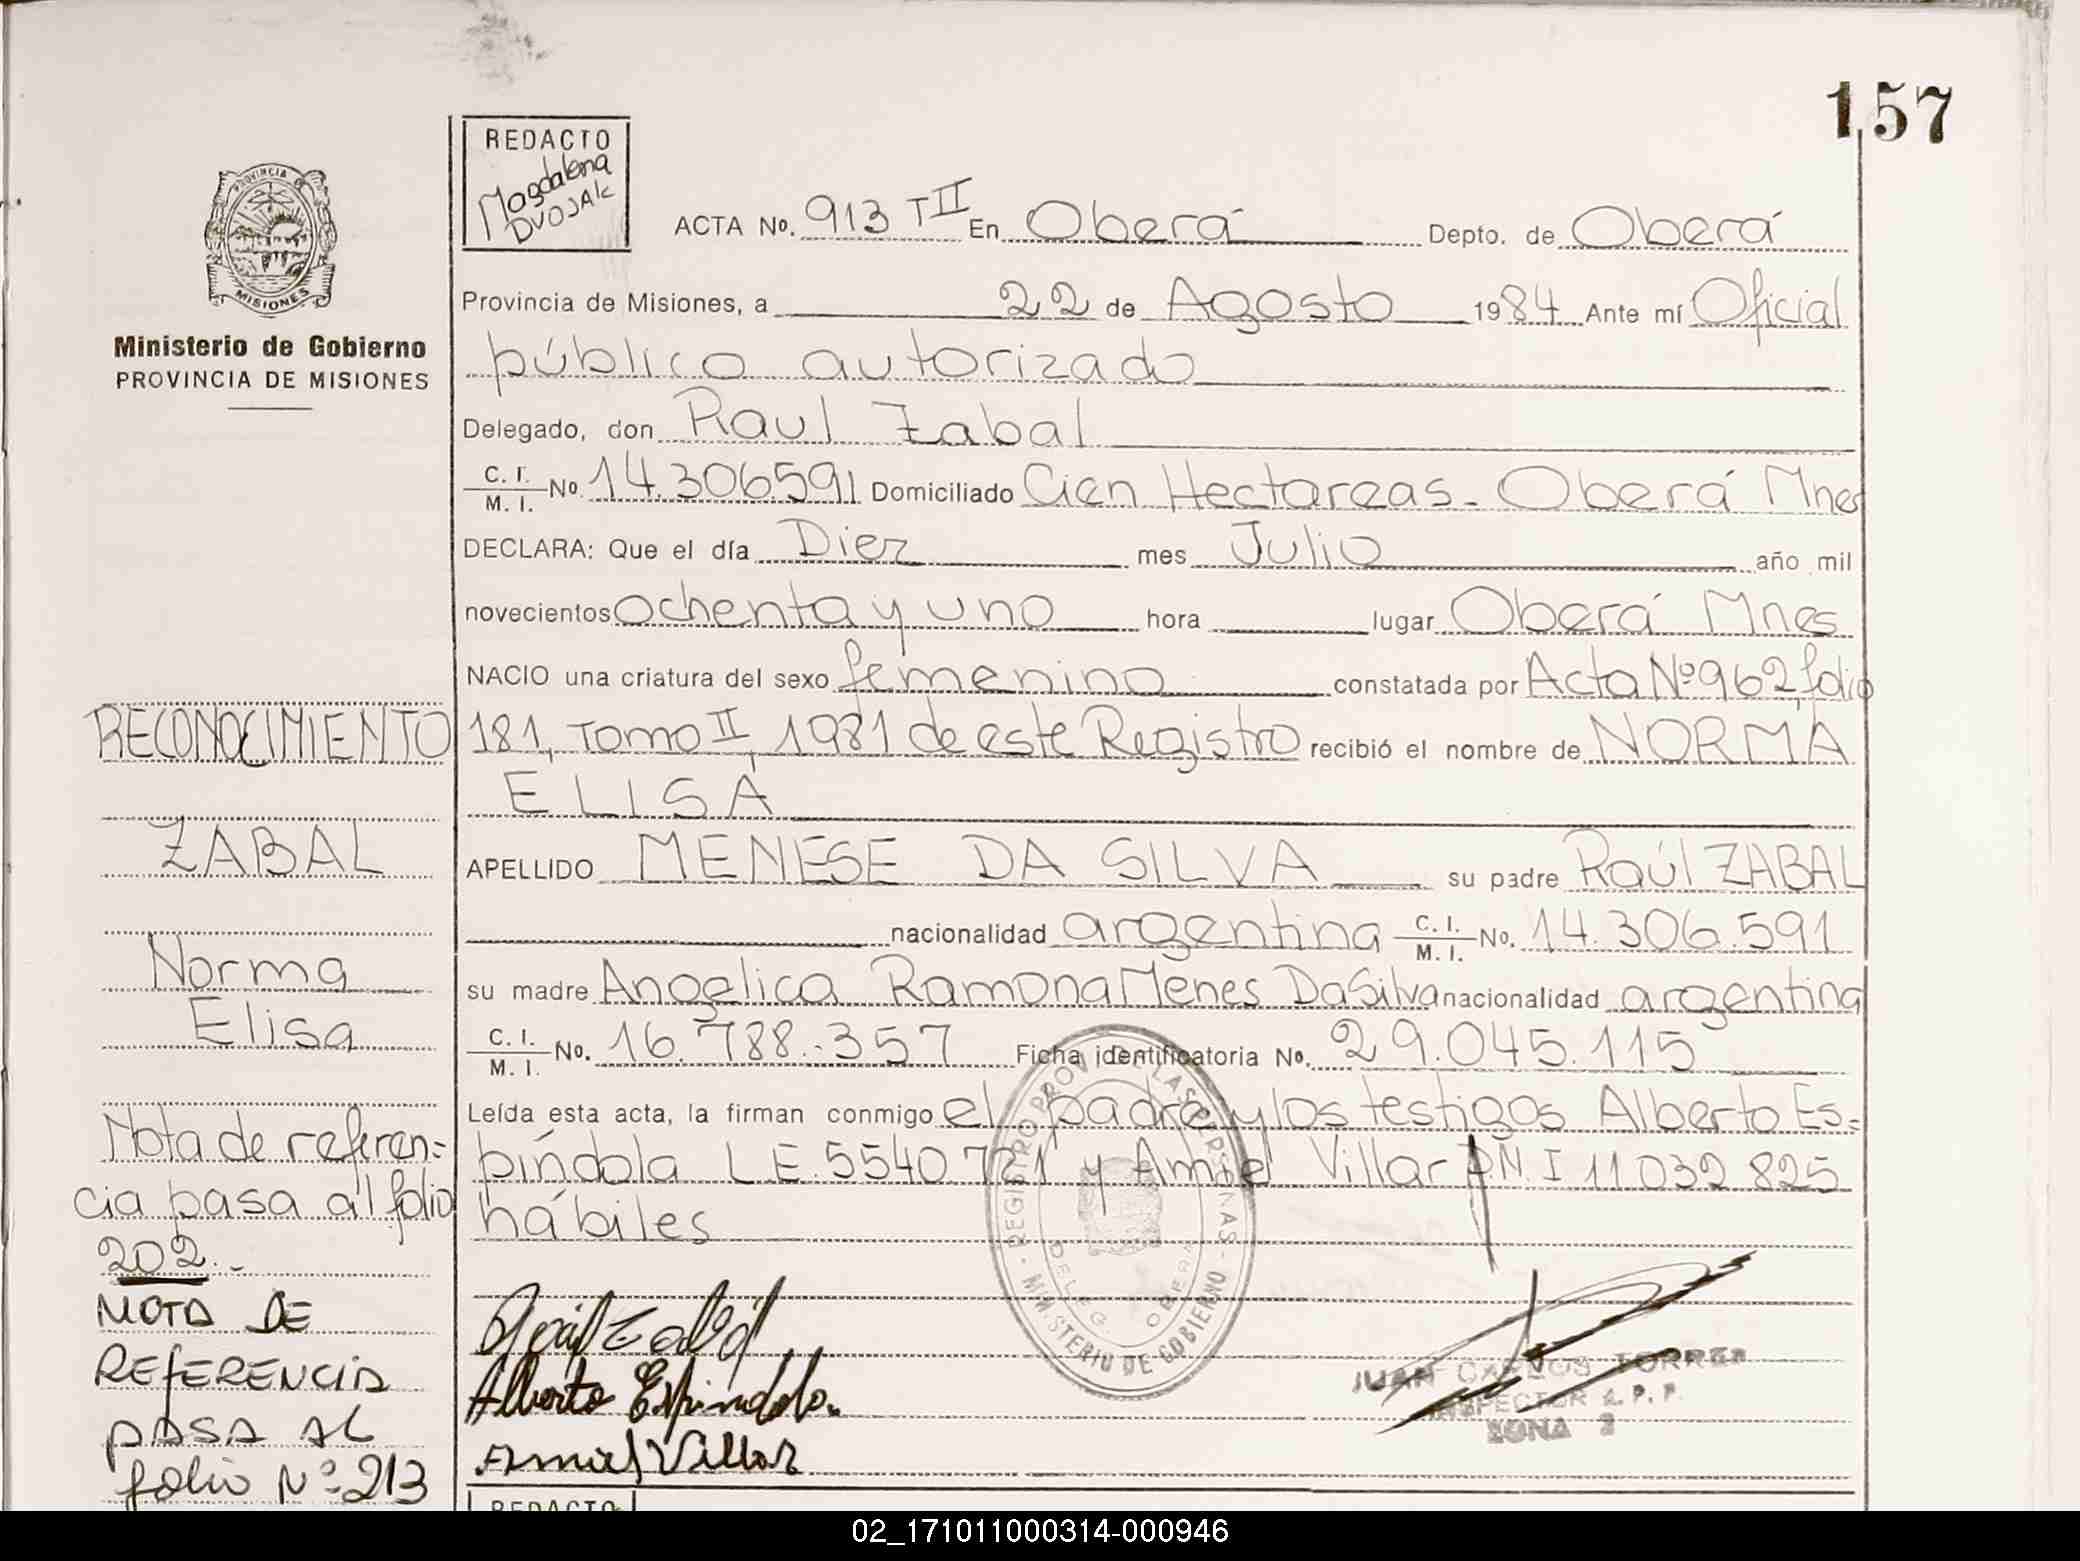 157
REDACTO
Magdalena
DVOJAK
PROVINCIA DE
MISIONES
Ministerio de Gobierno
PROVINCIA DE MISIONES
ACTA No. 913 TII En Oberá Depto. de Oberá
Provincia de Misiones, a 22 de Agosto 1984 Ante mí Oficial
público autorizado
Delegado, don Raul Zabal
C. I. / M. I. No. 14.306591 Domiciliado Cien Hectareas - Oberá Mnes
DECLARA: Que el día Diez mes Julio año mil
novecientos ochenta y uno hora lugar Oberá Mnes
NACIO una criatura del sexo femenino constatada por Acta Nº 962, folio
181, Tomo II, 1981 de este Registro recibió el nombre de NORMA
ELISA
APELLIDO MENESE DA SILVA su padre Raúl ZABAL
nacionalidad argentina C. I. / M. I. No. 14.306.591
su madre Angelica Ramona Menes DaSilva nacionalidad argentina
C. I. / M. I. No. 16.788.357 Ficha identificatoria No. 29.045.115
Leída esta acta, la firman conmigo el padre y los testigos Alberto Es=
píndola L.E. 5540721 y Amiel Villar D.N.I 11032825
hábiles
RECONOCIMIENTO
ZABAL
Norma
Elisa
Nota de referen=
cia pasa al folio
202.-
NOTA DE
REFERENCIA
PASA AL
folio Nº 213
Raúl Zabal
Alberto Espindola.
Amiel Villar
REGISTRO PROV. DE LAS PERSONAS - MINISTERIO DE GOBIERNO -
DELEG. OBERA
JUAN CARLOS TORRES
INSPECTOR R. P. P.
ZONA 2
REDACTO
02_171011000314-000946